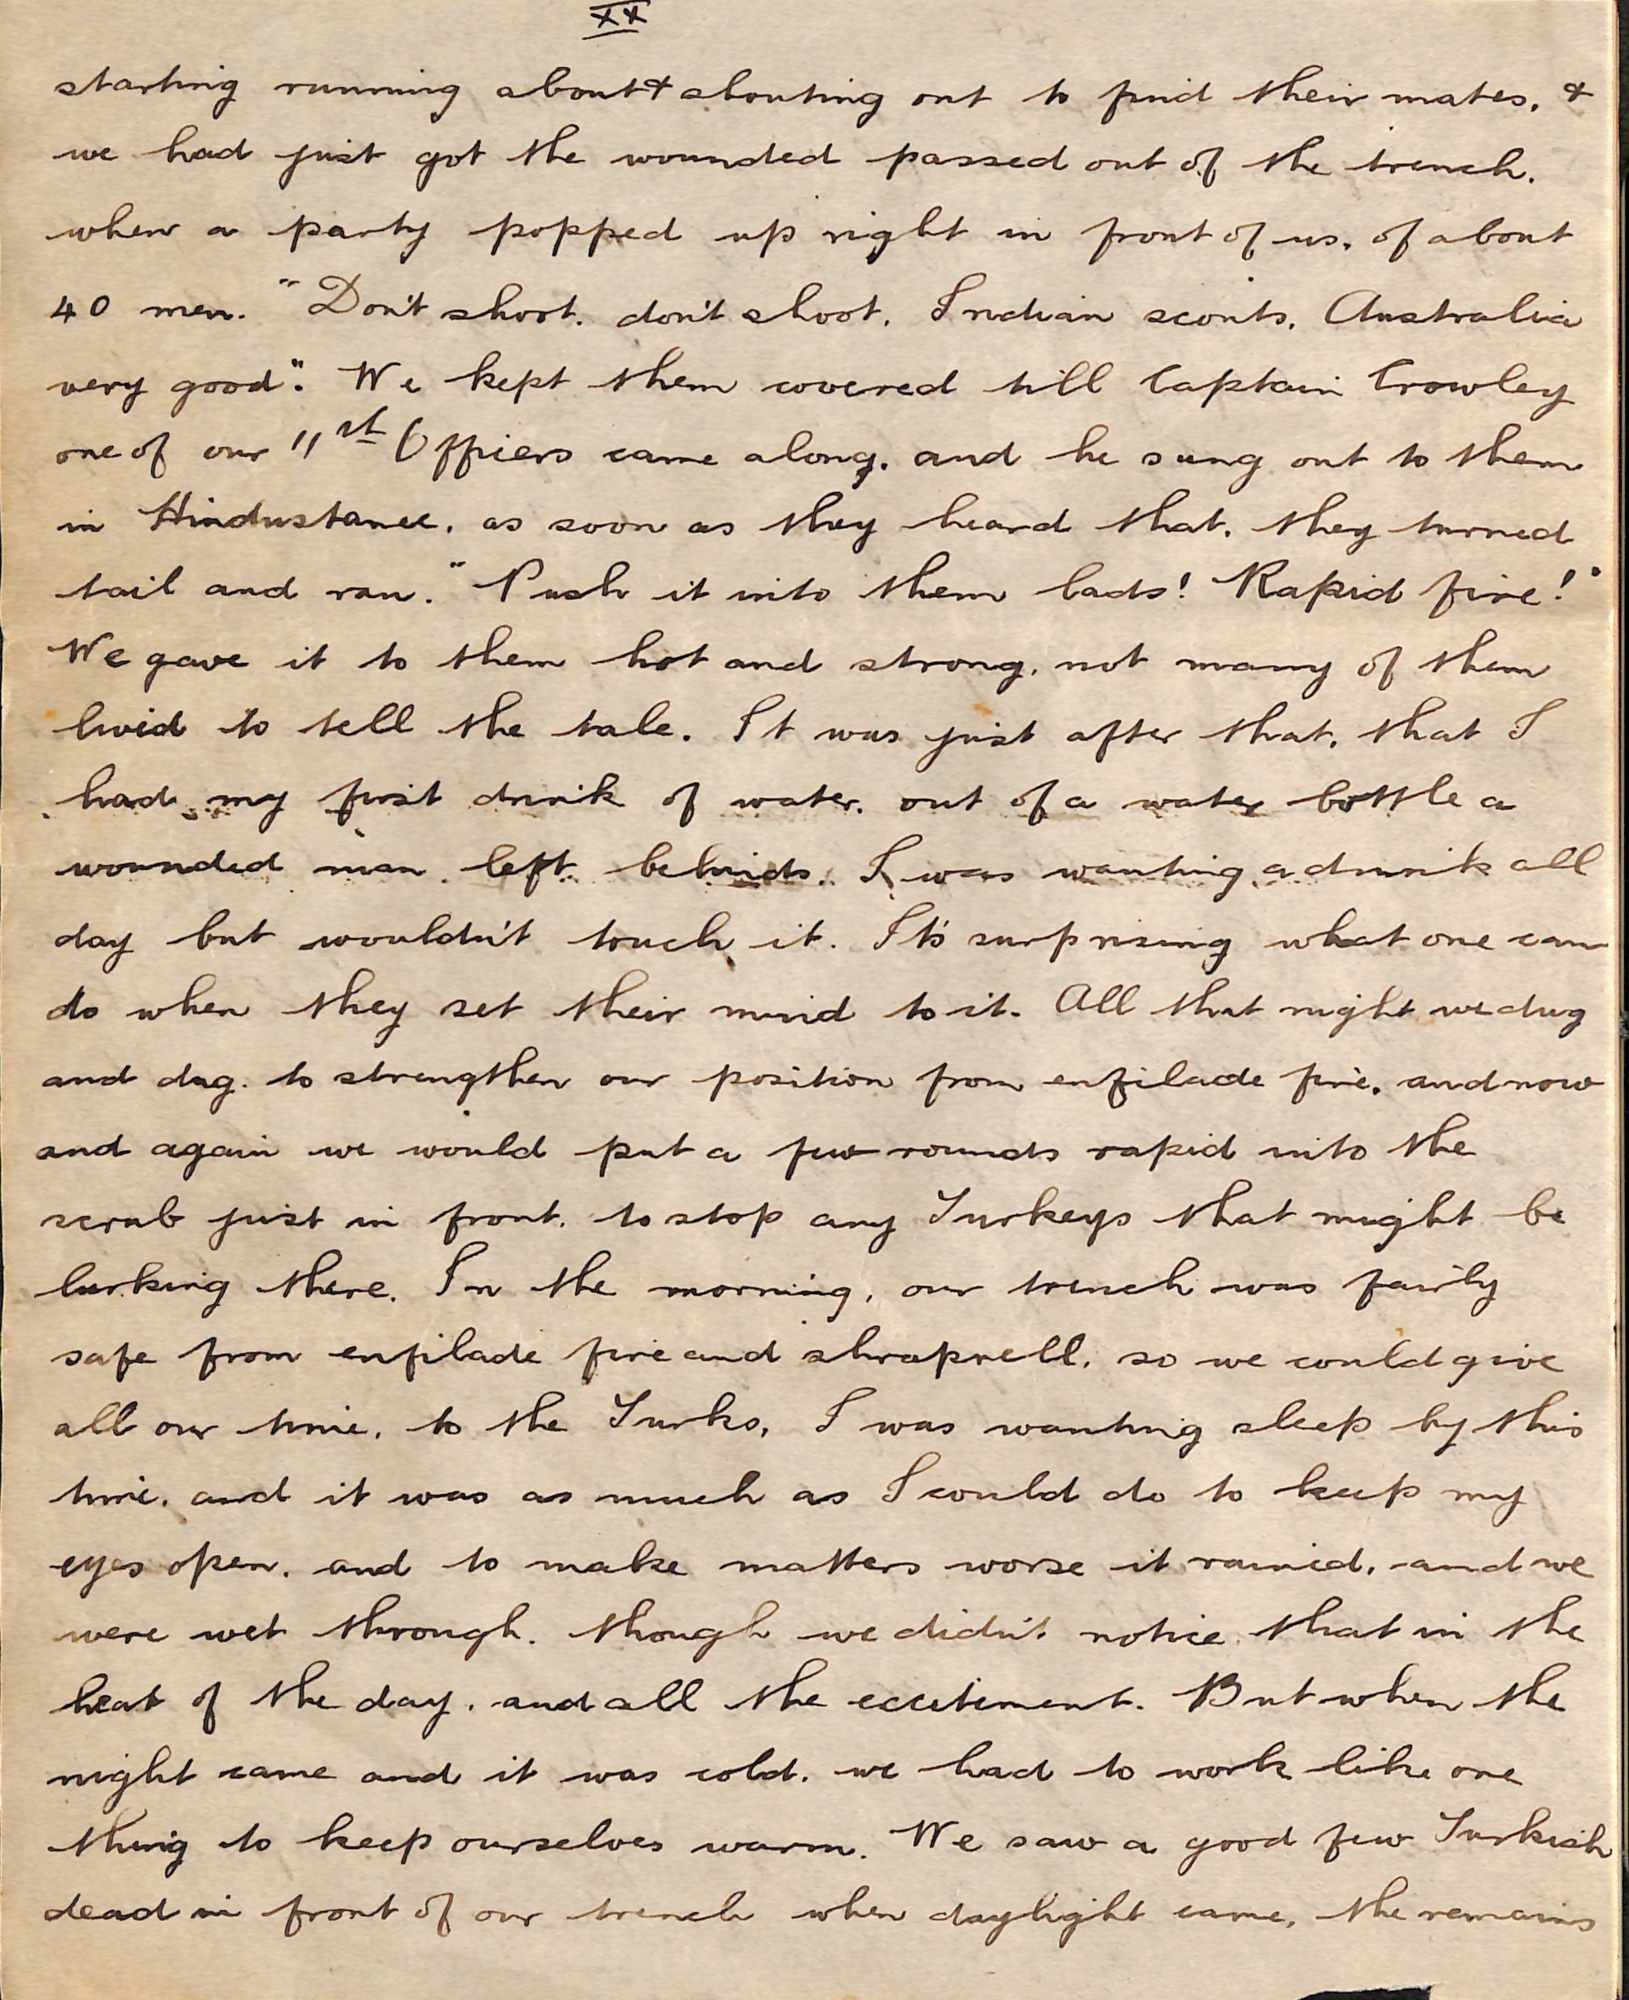 XX
starting running about & shouting out to find their mates. &
we had just got the wounded passed out of the trench.
when a party popped up right in front of us. of about
40 men. "Don't shoot. don't shoot. Indian scouts. Australia
very good". We kept them covered till Captain Crowley
one of our 11st Officers came along. and he sung out to them
in Hindustanee. as soon as they heard that. they turned
tail and ran. "Push it into them lads! Rapid fire!"
We gave it to them hot and strong. not many of them
lived to tell the tale. It was just after that. that I
had my first drink of water. out of a water bottle a
wounded man left behind. I was wanting a drink all
day but wouldn't touch it. It's surprising what one can
do when they set their mind to it. All that night we dug
and dug. to strengthen our position from enfilade fire. and now
and again we would put a few rounds rapid into the
scrub just in front. to stop any Turkeys that might be
lurking there. In the morning, our trench was fairly
safe from enfilade fire and shrapnell. so we could give
all our time. to the Turks. I was wanting sleep by this
time. and it was as much as I could do to keep my
eyes open. and to make matters worse it rained. and we
were wet through. though we didn't notice that in the
heat of the day. and all the excitement. But when the
night came and it was cold. we had to work like one
thing to keep ourselves warm. We saw a good few Turkish
dead in front of our trench when daylight came, the remains